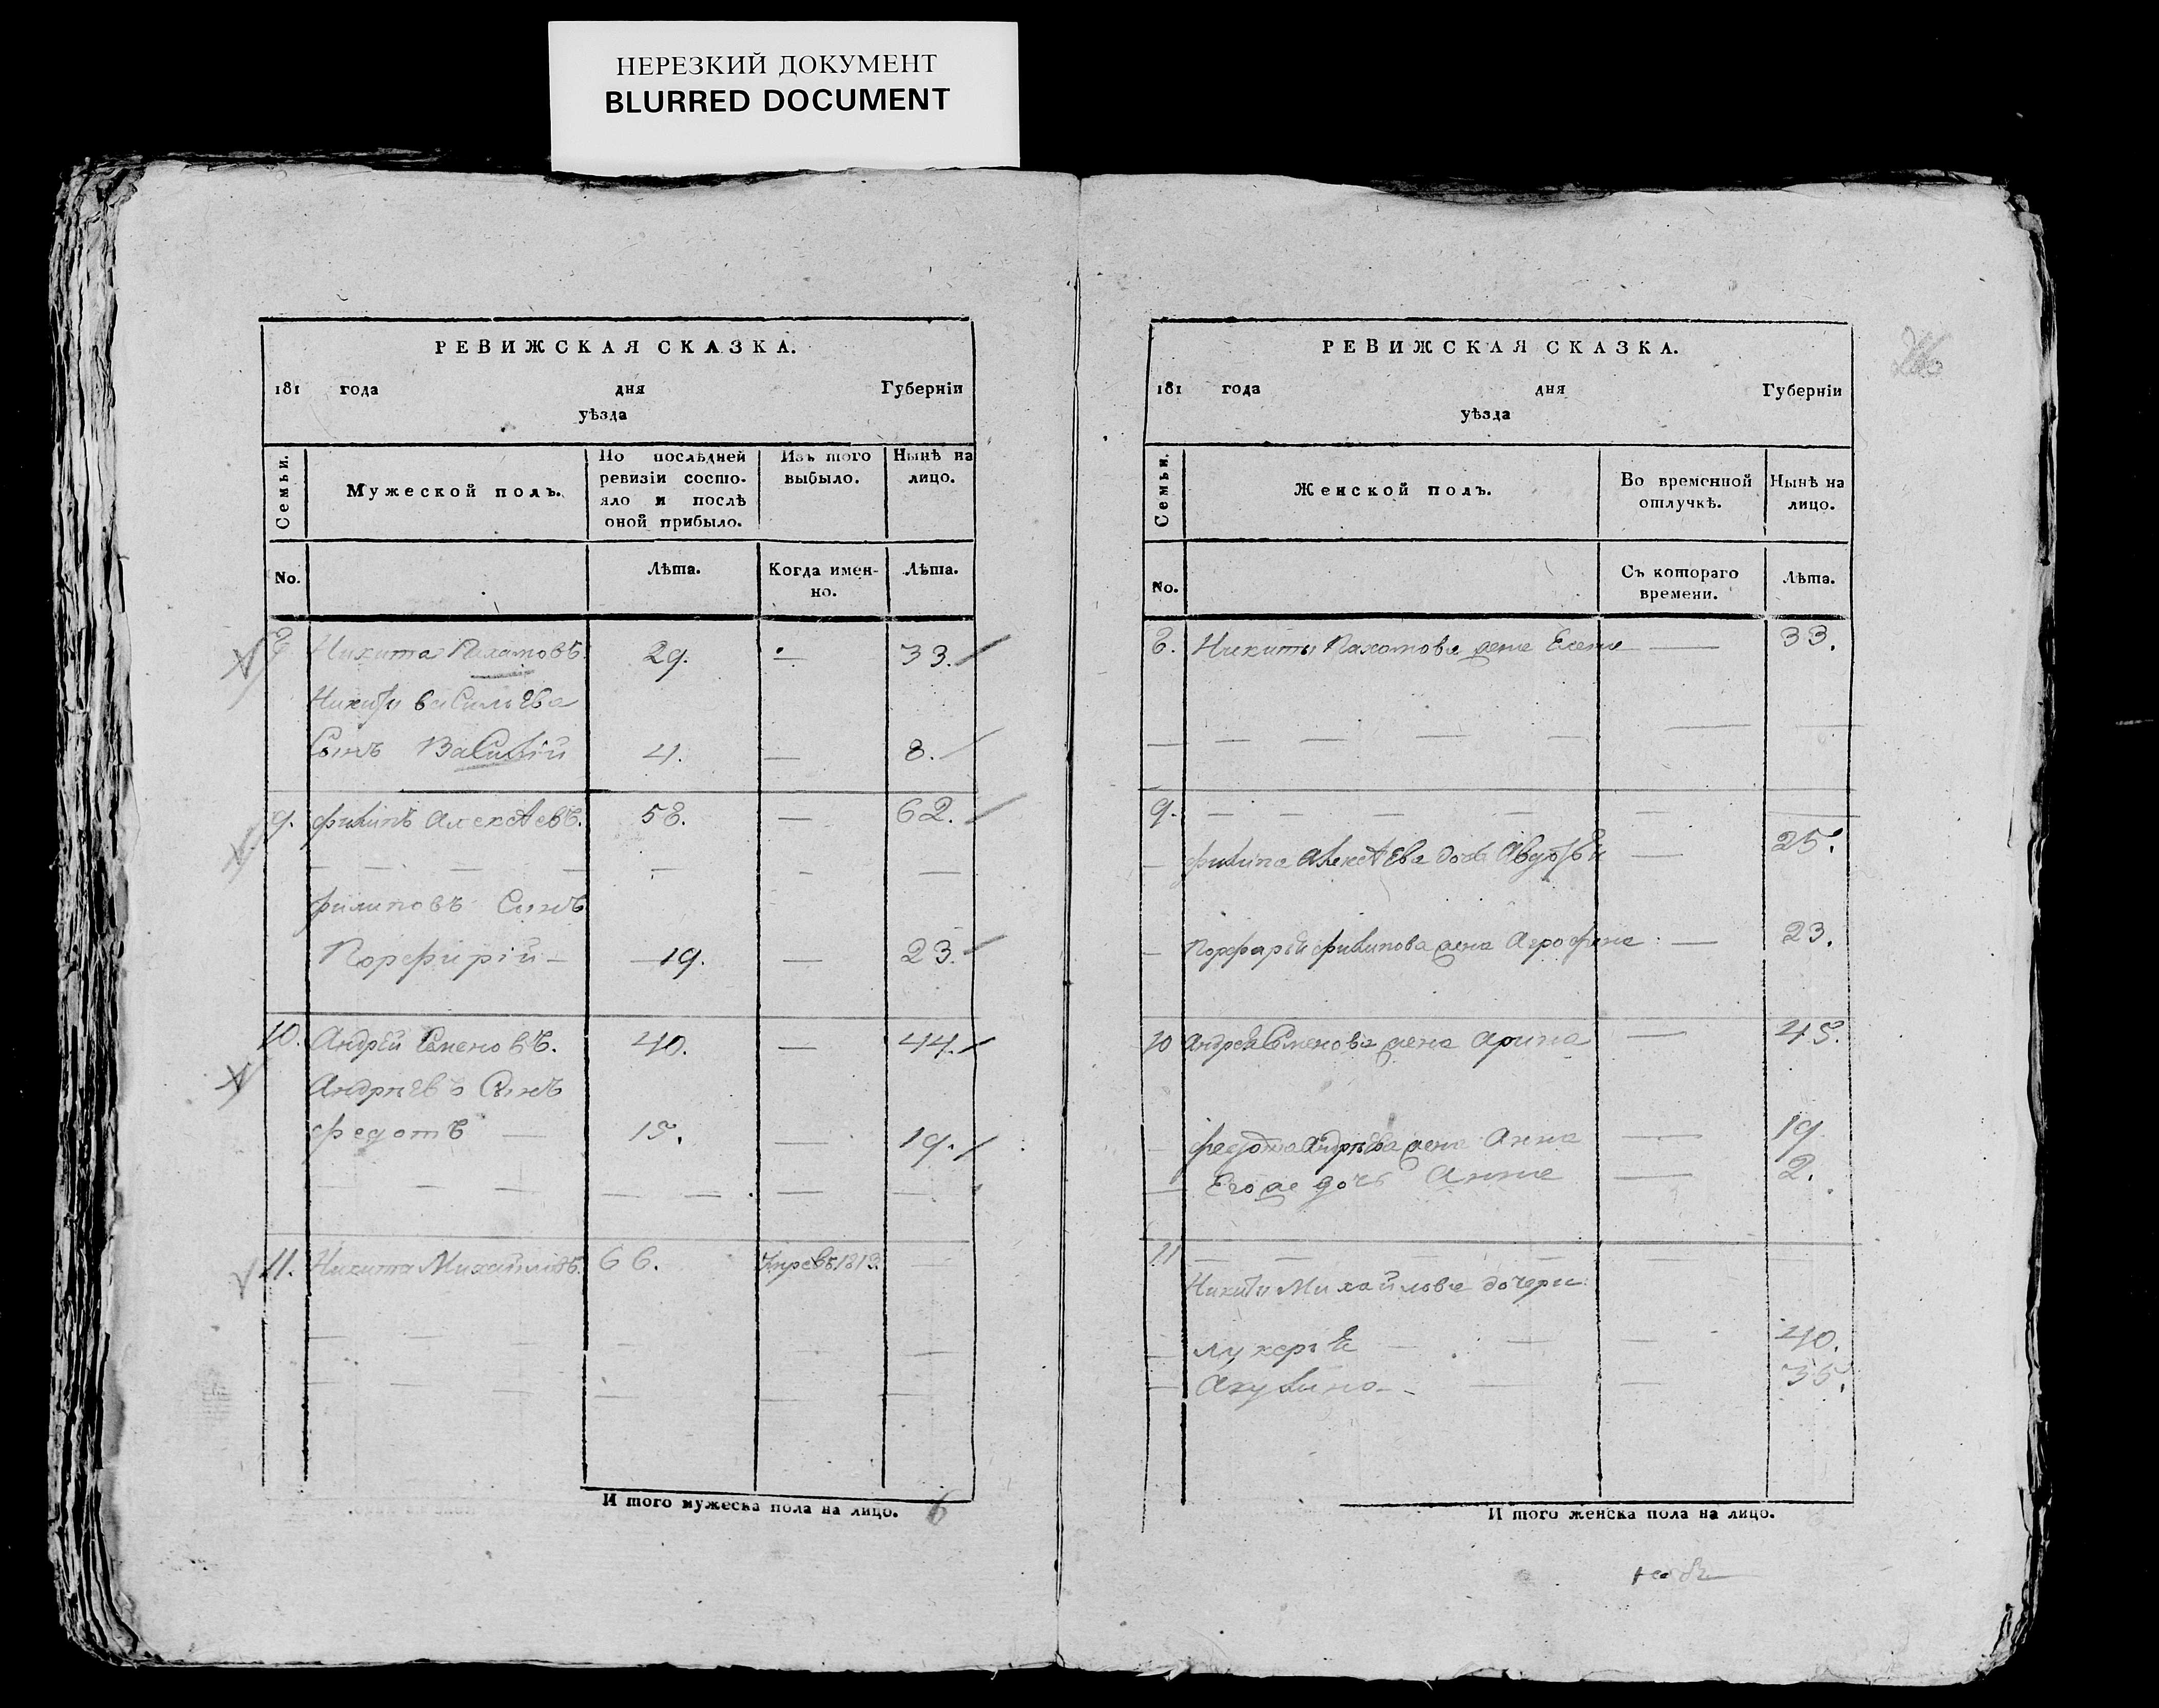 НЕРЕЗКИЙ ДОКУМЕНТ
BLURRED DOCUMENT
РЕВИЖСКАЯ СКАЗКА.
181 года дня Губерніи
уѣзда
Семьи.
Мужеской полъ.
По последней
ревизіи состо-
яло и послѣ
оной прибыло.
Изъ того
выбыло.
Нынѣ на
лицо.
No.
Лѣта.
Когда имен-
но.
Лѣта.
8. Никита Пахомовъ. 29. — 33.
Никиты василѣва
Сынъ Василій 4. — 8.
9. филипъ алексѣевъ. 58. — 62.
филиповъ Сынъ
Порфирій — 19. — 23.
10. Андрѣй Семеновъ. 40. — 44.
Андрѣевъ Сынъ
федотъ — 15. — 19.
11. Никита Михайловъ. 66. Умре въ 1813.
И того мужеска пола на лицо. 6
РЕВИЖСКАЯ СКАЗКА.
181 года дня Губерніи
уѣзда
Семьи.
Женской полъ.
Во временной
отлучкѣ.
Нынѣ на
лицо.
No.
Съ котораго
времени.
Лѣта.
8. Никиты Пахомова жена Елена — 33.
9.
филипа алексѣева дочь Авдотья — 25.
Порфирія филипова жена Агрофена — 23.
10 андрея Семенова жена арина — 45.
федота андрѣева жена анна — 19
Его же дочь анна — 2.
11
Никиты Михайлова дочери
лукерія — 40.
акулина — 35.
И того женска пола на лицо.